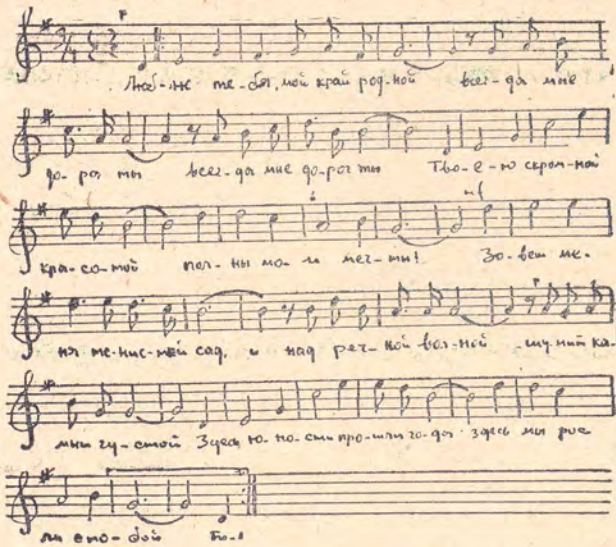 Люб-лю те-бя, мой край род-ной всег-да мне
до-рог ты всег-да мне до-рог ты Тво-е-ю скром-ной
кра-со-той пол-ны мо-и меч-ты! Зо-вет ме-
ня те-нис-тый сад, и над реч-ной вол-ной шу-мит ка-
мыш гу-стой Здесь ю-но-сти про-шли го-да здесь мы рос
ли с то-бой